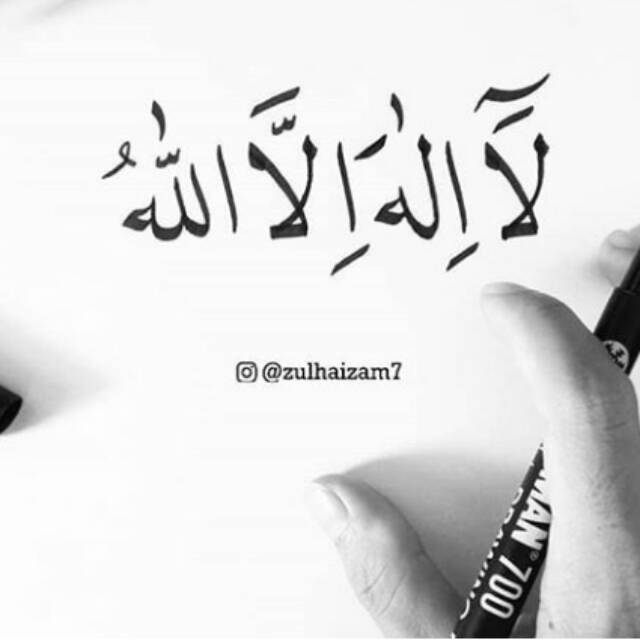 لَآ اِلٰهَ اِلَّا اللّٰهُ
@zulhaizam7
MAN 700